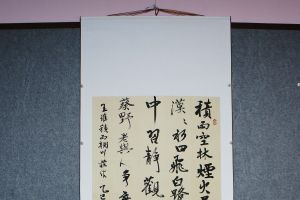 積雨空林煙火
漠〻水田飛白鷺
中習靜觀
葵野老與人爭
王維積雨輞川莊作 乙